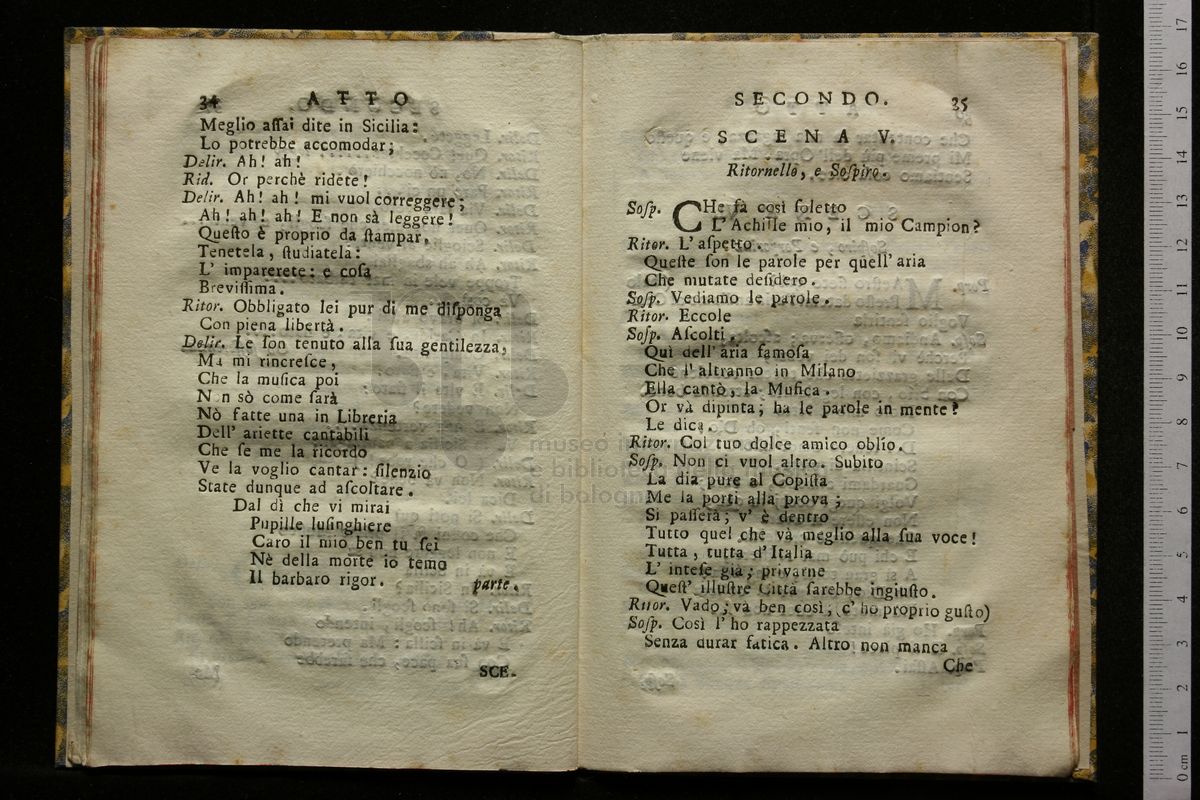 34 ATTO
Meglio assai dite in Sicilia:
Lo potrebbe accomodar;
Delir. Ah! ah!
Rid. Or perchè ridete!
Delir. Ah! ah! mi vuol correggere;
Ah! ah! ah! E non sà leggere!
Questo è proprio da stampar,
Tenetela, studiatela:
L' imparerete: e cosa
Brevissima.
Ritor. Obbligato lei pur di me disponga
Con piena libertà.
Delir. Le son tenuto alla sua gentilezza,
Ma mi rincresce,
Che la musica poi
Non sò come sarà
Nò fatte una in Libreria
Dell' ariette cantabili
Che se me la ricordo
Ve la voglio cantar: silenzio
State dunque ad ascoltare.
Dal dì che vi mirai
Pupille lusinghiere
Caro il mio ben tu sei
Nè della morte io temo
Il barbaro rigor. parte.
SCE-
SECONDO. 35
SCENA V.
Ritornello, e Sospiro.
Sosp. CHe fà così soletto
L'Achille mio, il mio Campion?
Ritor. L' aspetto.
Queste son le parole per quell' aria
Che mutate desidero.
Sosp. Vediamo le parole.
Ritor. Eccole
Sosp. Ascolti,
Quì dell' aria famosa
Che l' altranno in Milano
Ella cantò, la Musica.
Or và dipinta; ha le parole in mente?
Le dica.
Ritor. Col tuo dolce amico oblio.
Sosp. Non ci vuol altro. Subito
La dia pure al Copista
Me la porti alla prova;
Si passerà; v' è dentro
Tutto quel che và meglio alla sua voce!
Tutta, tutta d' Italia
L' intese già; privarne
Quest' illustre Città sarebbe ingiusto.
Ritor. Vado, và ben così, (c' ho proprio gusto)
Sosp. Così l' ho rappezzata
Senza durar fatica. Altro non manca
Che